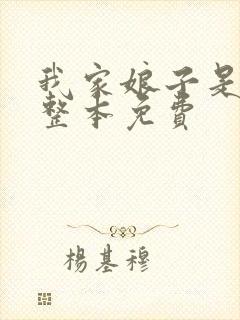 我家娘子是
整本免费
楊基穆